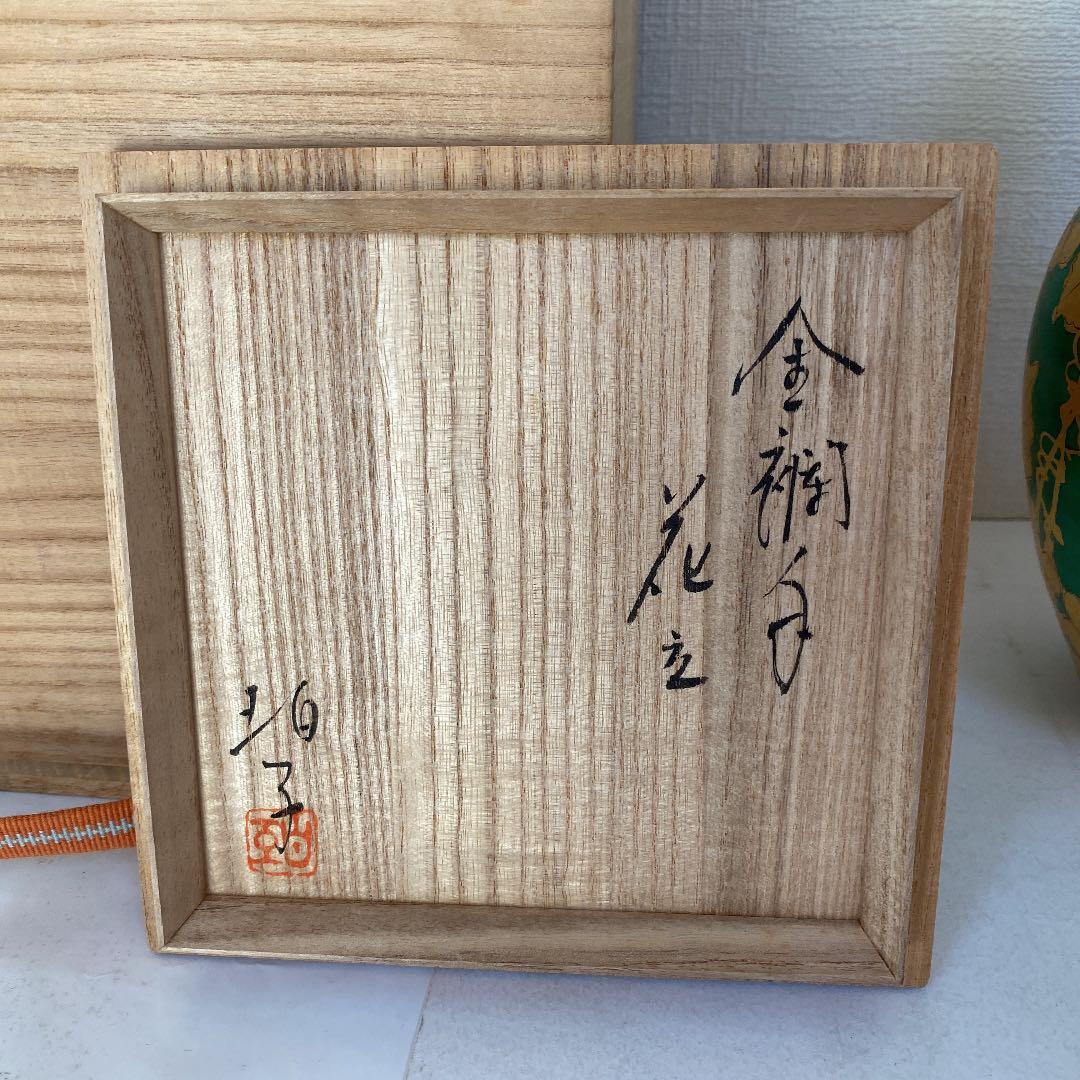 金襴手
花立
珀子